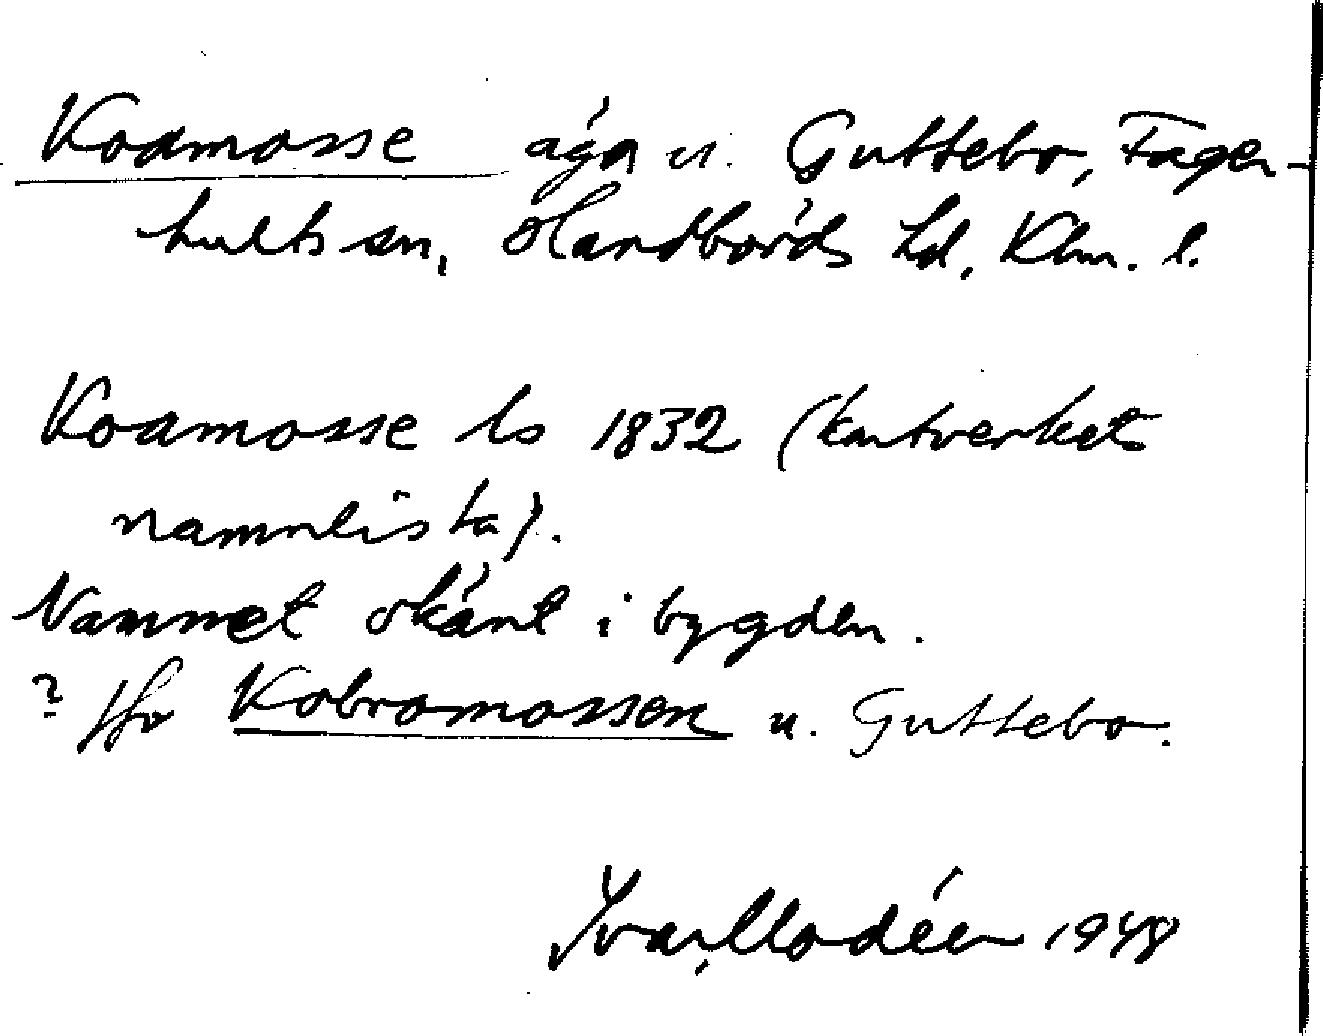 Koamosse äga u. Guttebo, Fager-
hults sn, Handbörds hd, Klm. l.
Koamosse ls 1832 (kartverkets
namnlista).
Namnet okänt i bygden.
? Jfr Kobromossen u. Guttebo.
Ivar Modéer 1948